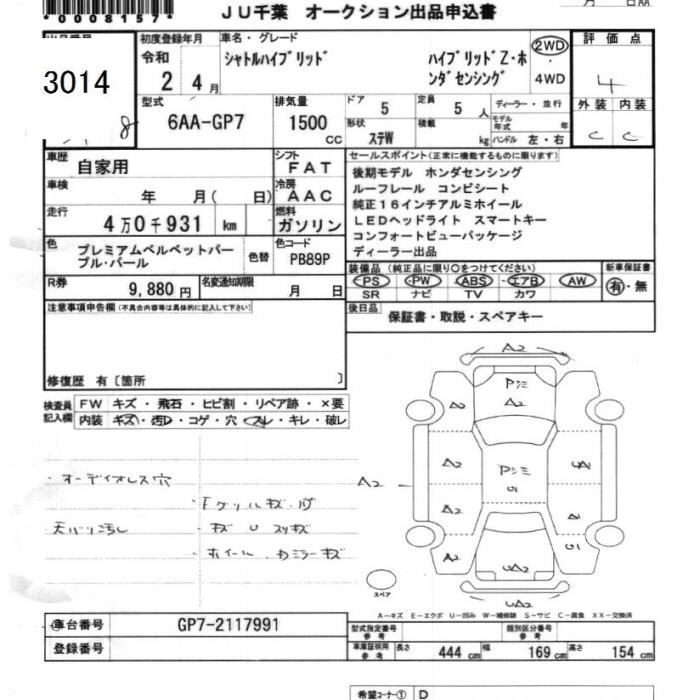 *0008157*
JU千葉 オークション出品申込書
月 日AA
初度登録年月
車名・グレード
評価点
令和
2 4月
シャトルハイブリッド
ハイブリッドZ・ホンダセンシング
2WD
・
4WD
4
3014
8
型式
6AA-GP7
排気量
1500
CC
ドア
5
定員
5人
形状
ステW
積載
kg
ディーラー・並行
モデル年式
年
ハンドル 左・右
外装 内装
C C
車歴
自家用
シフト
FAT
車検
年 月( 日)
冷房
AAC
走行
4万0千931 km
燃料
ガソリン
色
プレミアムベルベットパープル・パール
色替
色コード
PB89P
R券
9,880円
名変通知期限
月 日
セールスポイント(正常に機能するものに限ります)
後期モデル ホンダセンシング
ルーフレール コンビシート
純正16インチアルミホイール
LEDヘッドライト スマートキー
コンフォートビューパッケージ
ディーラー出品
装備品(純正品に限り○をつけてください)
新車保証書
PS PW ABS エアB AW
SR ナビ TV カワ
有・無
後日品
保証書・取説・スペアキー
注意事項申告欄(不具合内容等は具体的に記入して下さい)
修復歴 有〔箇所 〕
検査員記入欄
FW キズ・飛石・ヒビ割・リペア跡・×要
内装 キズ・汚レ・コゲ・穴・スレ・キレ・破レ
・オーディオレス穴
・Fグリルキズ・
天バリ汚し
・キズ U スリキズ
・ホイール・カミラーキズ
A2
Pシミ
A2
A2
A2
A2
A2
A2
Pシミ
U1
A2
A2
A2
UA1
A1
U1
UA2
UA2
スペア
A-キズ E-エクボ U-凹み W-補修跡 S-サビ C-腐食 XX-交換済
車台番号
GP7-2117991
登録番号
型式指定番号
参考
類別区分番号
参考
車庫証明用
参考
長さ
444 cm
幅
169 cm
高さ
154 cm
希望コーナー① D